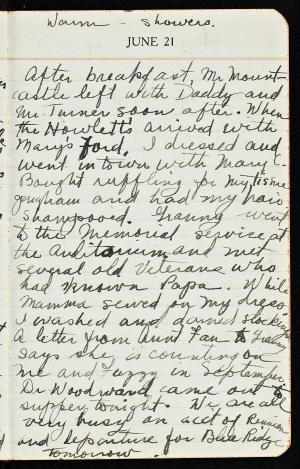 Warm - showers.
JUNE 21
After breakfast, Mr Mount-
castle left with Daddy and
Mr. Turner soon after. When
the Howletts arrived with
Mary's Ford, I dressed and
went in town with Mary C.
Bought ruffling for my tissue
gingham and had my hair
shampooed. Granny went
to the Memorial service at
the Auditorium and met
several old Veterans who
had known Papa. While
Mamma sewed on my dress,
I washed and darned stockings.
A letter from Aunt Fan to Granny
says she is counting on
me and Fuzzy in September.
Dr Woodward came out to
supper tonight. We are all
very busy on acct of Reunion
and departure for Blue Ridge
tomorrow.